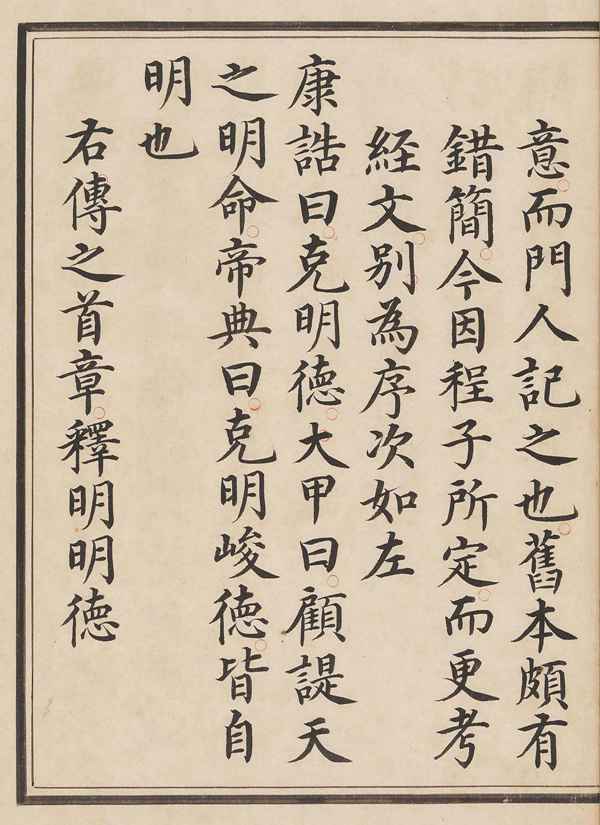 意而門人記之也舊本頗有
錯簡今因程子所定而更考
經文別為序次如左
康誥曰克明德大甲曰顧諟天
之明命帝典曰克明峻德皆自
明也
右傳之首章釋明明德